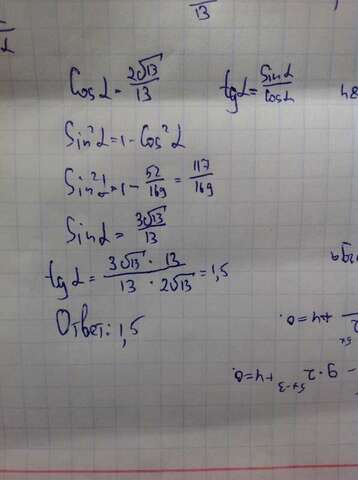 13
cos α = 2√13/13 tg α = sin α/cos α
sin²α = 1 - cos²α
sin²α = 1 - 52/169 = 117/169
sin α = 3√13/13
tg α = 3√13 · 13 / 13 · 2√13 = 1,5
Ответ: 1,5
+4=0.
- 9·2^5x-3 +4=0